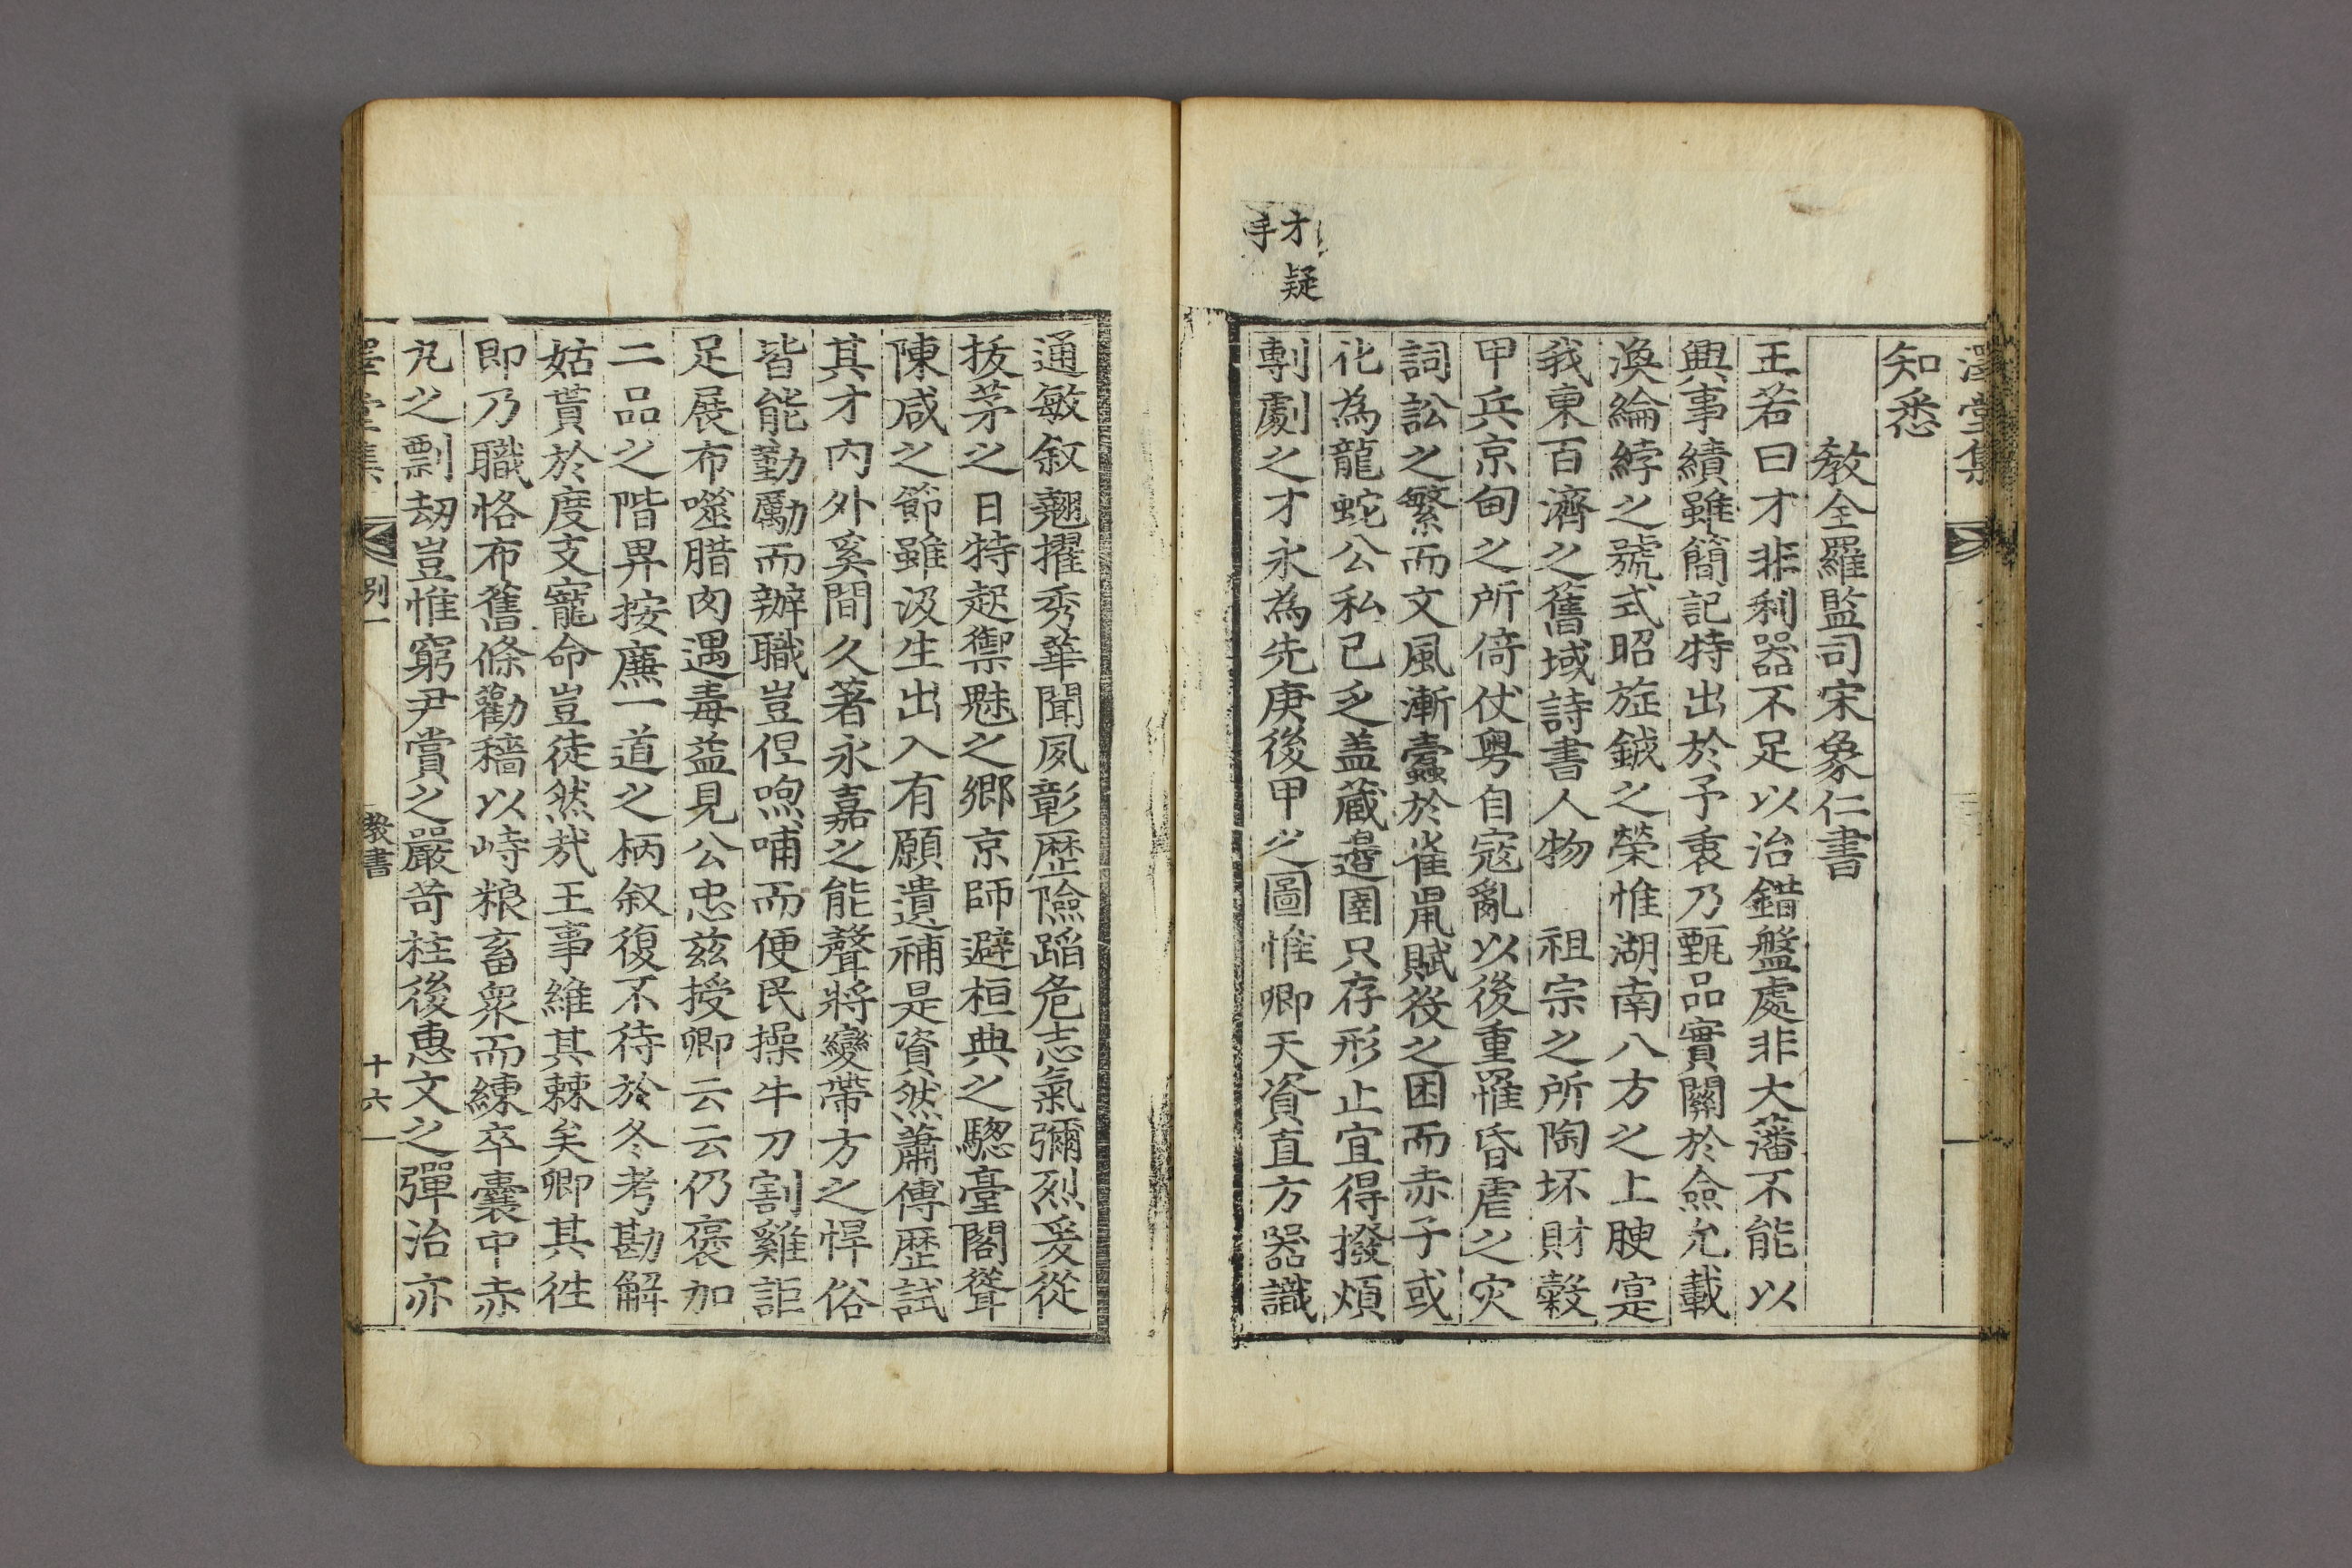 澤堂集
知悉
教全羅監司宋象仁書
王若曰才非利器不足以治錯盤處非大藩不能以
興事績雖簡記特出於予衷乃甄品實關於僉允載
渙綸綍之號式昭旌鉞之榮惟湖南八方之上腴寔
我東百濟之舊域詩書人物 祖宗之所陶坯財穀
甲兵京甸之所倚仗粤自寇亂以後重罹昏虐之灾
詞訟之繁而文風漸蠹於雀鼠賦役之困而赤子或
化為龍蛇公私已乏盖藏邉圉只存形止宜得撥煩
剸劇之才永為先庚後甲之圖惟卿天資直方器識
才疑
手
通敏叙翹擢秀華聞夙彰歷險蹈危志氣彌烈爰從
拔茅之日特起禦魅之郷京師避桓典之驄臺閣聳
陳咸之節雖汲生出入有願遺補是資然蕭傅歷試
其才內外奚間久著永嘉之能聲將變帶方之悍俗
皆能勤勵而辦職豈但喣哺而便民操牛刀割雞詎
足展布噬腊肉遇毒益見公忠兹授卿云云仍褒加
二品之階畀按廉一道之柄叙復不待於冬考勘解
姑貰於度支寵命豈徒然㦲王事維其棘矣卿其徃
即乃職恪布舊條勸穡以峙粮畜衆而練卒囊中赤
丸之剽刼豈惟窮尹賞之嚴苛柱後惠文之彈治亦
澤堂集 別一 教書 十六